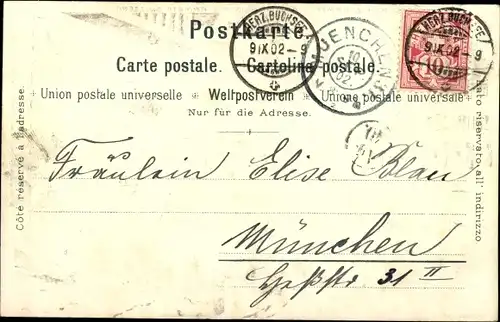 Postkarte.
Carte postale. Cartolina postale.
Union postale universelle Weltpostverein Unione postale universale
Nur für die Adresse.
HERZ.BUCHSEE
9.IX.02-9
MUENCHEN
HERZ.BUCHSEE
9.IX.02-9
10
Fräulein Elise Blau
München
Heßstr 31 II
Côté réservé à l'adresse.
Lato riservato all' indirizzo